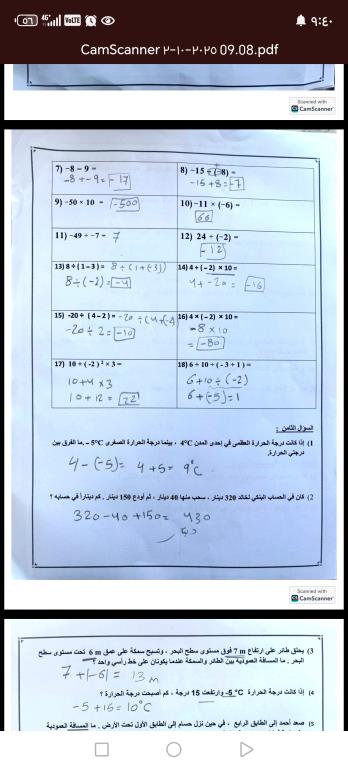 ٩:٤٠
4G VoLTE ٥٦
CamScanner ٢-١٠-٢٠٢٥ 09.08.pdf
Scanned with
CamScanner
7) -8 – 9 =
-8 + -9 = -17
8) -15 – (-8) =
-15 + 8 = -7
9) -50 × 10 = -500
10) -11 × (-6) =
66
11) -49 ÷ -7 = 7
12) 24 ÷ (-2) =
-12
13) 8 ÷ (1 – 3) = 8 ÷ (1 + (-3))
8 ÷ (-2) = -4
14) 4 + (-2) × 10 =
4 + -20 = -16
15) -20 ÷ (4 – 2) = -20 ÷ (4 + (-2)
-20 ÷ 2 = -10
16) 4 × (-2) × 10 =
-8 × 10
= -80
17) 10 + (-2)² × 3 =
10 + 4 × 3
10 + 12 = 22
18) 6 + 10 ÷ (-3 + 1) =
6 + 10 ÷ (-2)
6 + (-5) = 1
السؤال الثامن :
1) إذا كانت درجة الحرارة العظمى في إحدى المدن 4°C ، بينما درجة الحرارة الصغرى 5°C – .ما الفرق بين
درجتي الحرارة.
4 - (-5) = 4 + 5 = 9°C
2) كان في الحساب البنكي لخالد 320 دينار ، سحب منها 40 دينار ، ثم أودع 150 دينار . كم ديناراً في حسابه ؟
320 - 40 + 150 = 430
Scanned with
CamScanner
3) يحلق طائر على ارتفاع 7 m فوق مستوى سطح البحر ، وتسبح سمكة على عمق 6 m تحت مستوى سطح
البحر . ما المسافة العمودية بين الطائر والسمكة عندما يكونان على خط رأسي واحد ؟
7 + |-6| = 13 m
4) إذا كانت درجة الحرارة -5 °C وارتفعت 15 درجة ، كم أصبحت درجة الحرارة ؟
-5 + 15 = 10°C
5) صعد أحمد إلى الطابق الرابع ، في حين نزل حسام إلى الطابق الأول تحت الأرض . ما المسافة العمودية